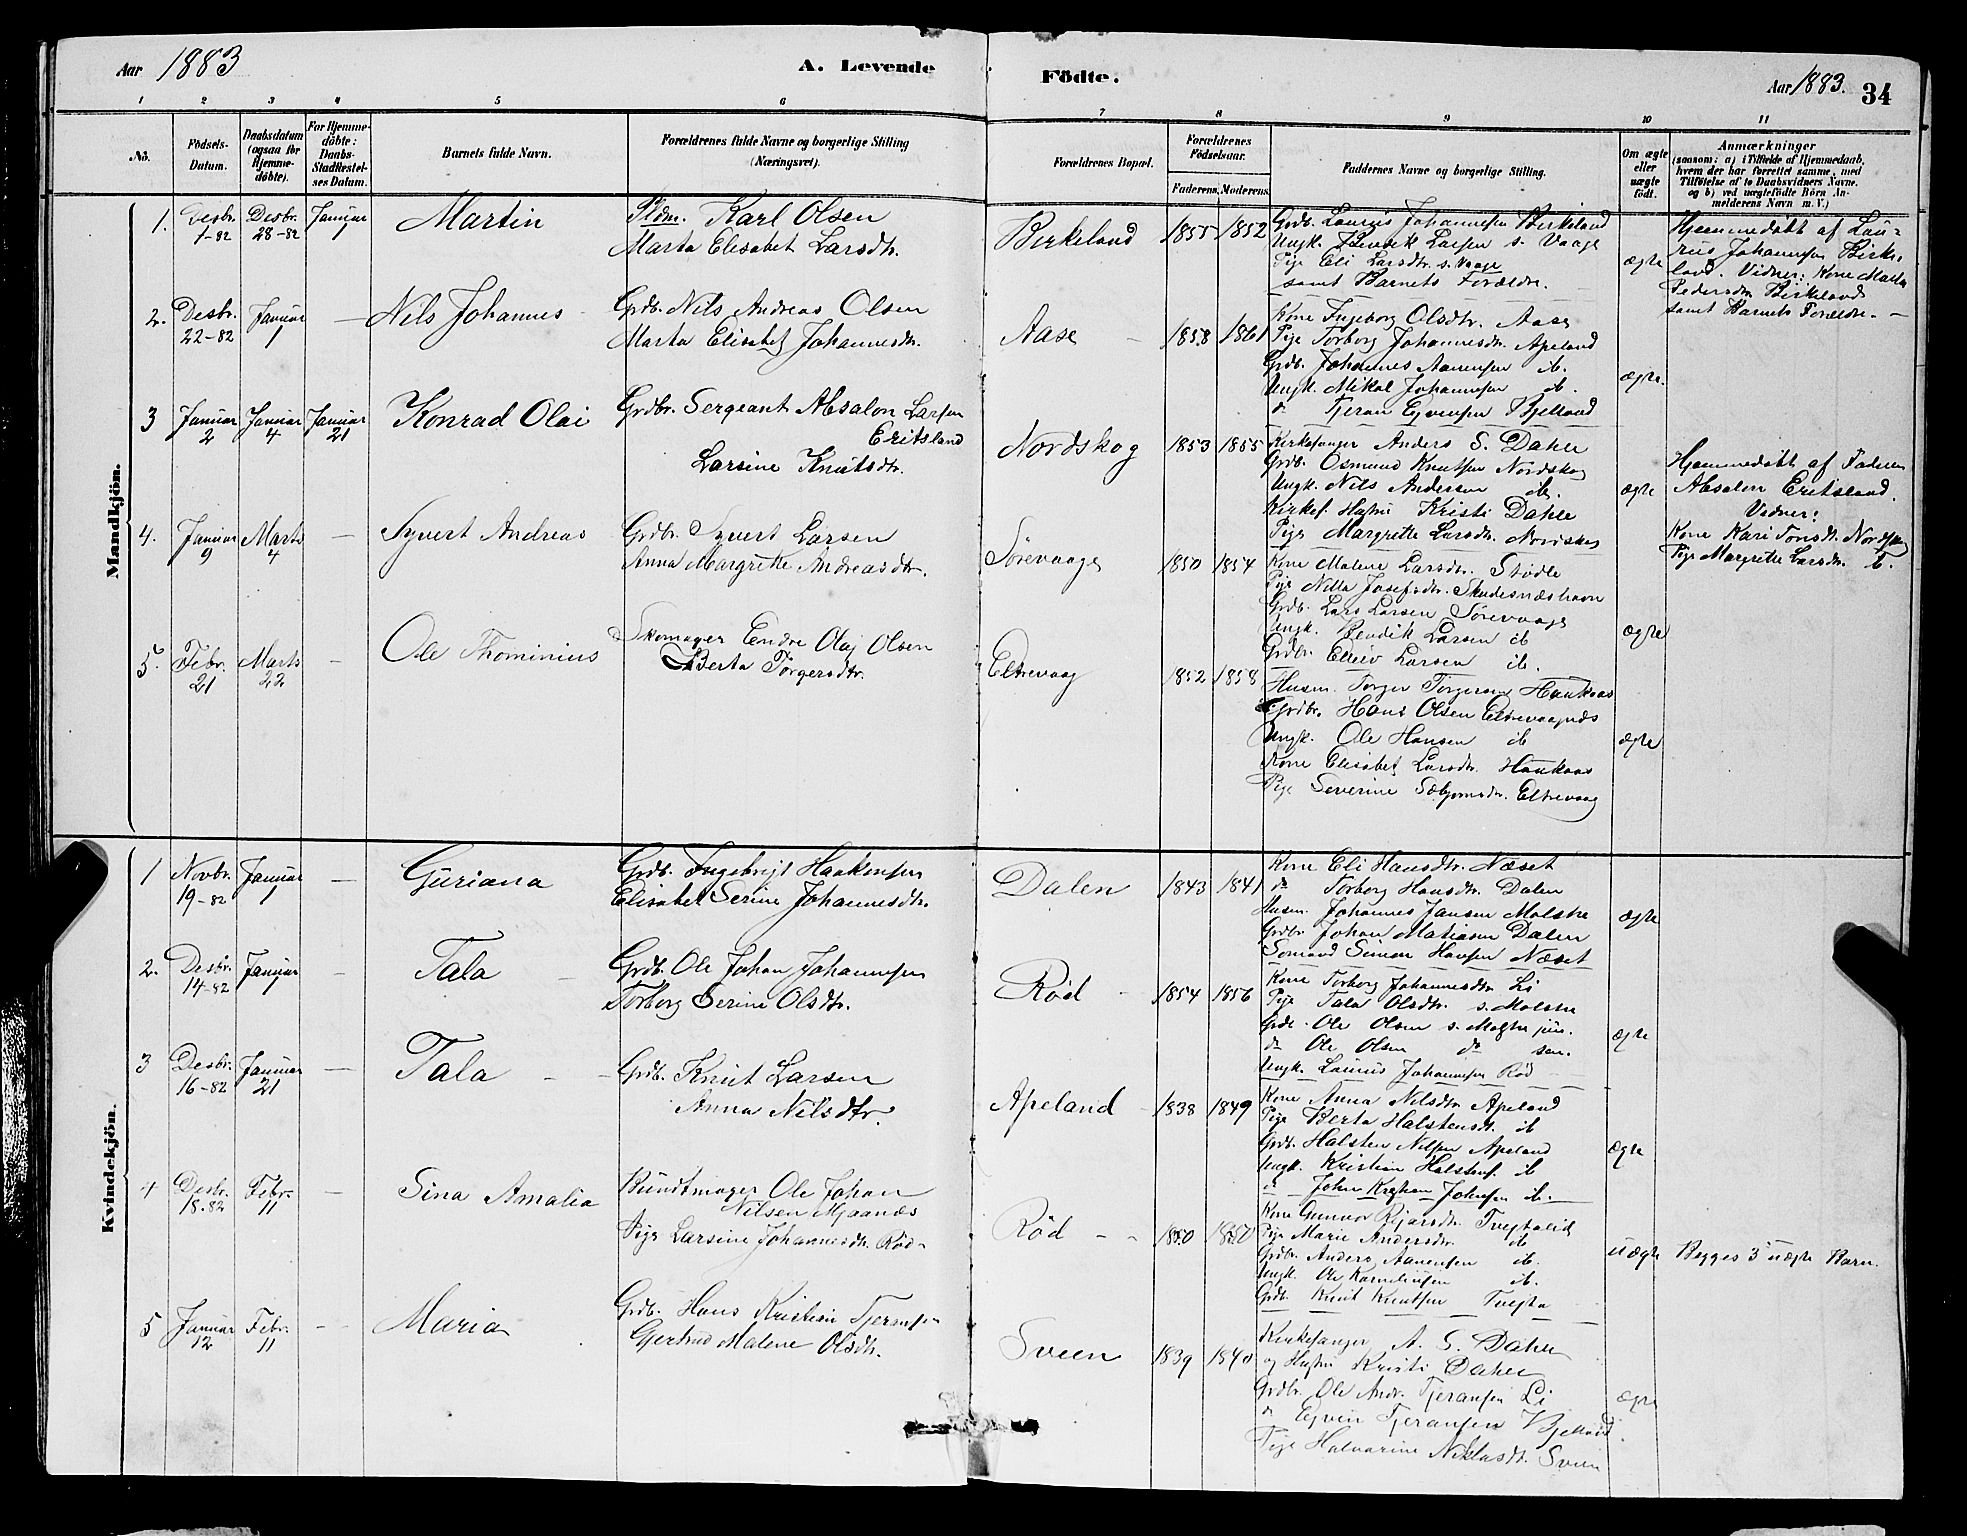 Aar 1883
A. Levende
Födte.
Aar 1883.
34
1 2 3 4 5 6 7 8 9 10 11
No.
Födsels-
Datum.
Daabsdatum
(ogsaa for
Hjemme-
döbte).
For Hjemme-
döbte:
Daabs-
Stadfæstel-
ses Datum.
Barnets fulde Navn.
Forældrenes fulde Navne og borgerlige Stilling
(Næringsvei).
Forældrenes Bopæl.
Forældrenes
Födselsaar.
Faderens. Moderens.
Faddernes Navne og borgerlige Stilling.
Om ægte
eller
uægte
födt.
Anmærkninger
(saasom: a) i Tilfælde af Hjemmedaab,
hvem der har forrettet samme, med
Tilföielse af to Daabsvidners Navne.
og b) ved uægtefödte Börn An-
melderens Navn m. V.)
Mandkjön.
1. Desbr. 1-82 Desbr. 28-82 Januar 1 Martin
Karl Olsen
Marta Elisabet Larsdtr.
Birkeland 1855 1852
Grdb. Laurus Johannesen Birkeland
Ungk. Bendik Larsen s. Vaage
Pige Eli Larsdtr. s. Vaage
samt Barnets Forældre.
ægte
Hjemmedøbt af Lau-
rus Johannesen Birke-
land. Vidner: Kone Marta
Pedersdtr Birkeland
samt Barnets Forældre. —
2. Desbr. 22-82 Januar 1 — Nils Johannes
Grdb. Nils Andreas Olsen
Marta Elisabet Johannesdtr.
Aase 1858 1861
Kone Ingeborg Olsdtr. Aase
Pige Torborg Johannesdtr. Apeland
Grdb. Johannes Aanensen ib.
Ungk. Mikal Johannesen ib.
do Tjeran Eyvensen Bjelland
ægte.
3 Januar 2 Januar 4 Januar 21 Konrad Olai
Grdbr. Sergeant Absalon Larsen
Eritsland
Larsine Knutsdtr.
Nordskog 1853 1855
Kirkesanger Anders S. Dahle
Grdb. Osmund Knutsen Nordskog
Ungk. Nils Andersen ib.
Kirkes. Hustru Kristi Dahle
Pige Margrette Larsdtr. Nordskog
ægte
Hjemmedøbt af Faderen
Absalon Eritsland.
Vidner:
Kone Kari Tonsdt. Nordskog
Pige Margrette Larsdtr. ib.
4. Januar 9 Marts 4 — Syvert Andreas
Grdbr. Syvert Larsen
Anna Margrette Andreasdtr.
Sørevaage 1850 1854
Kone Malene Larsdtr. Stødle
Pige Nilla Josefsdtr. Skudesnæshavn
Grdb. Lars Larsen Sørevaage
Ungk. Bendik Larsen ib
Grdbr. Elleiv Larsen ib.
ægte
5. Febr. 21 Marts 22 — Ole Thominius
Skomager Endre Olaj Olsen
Berta Torgersdtr.
Eltrevaag 1852 1858
Husm. Torger Torgersen Haukaas
Grdbr. Hans Olsen Eltrevaagnæs
Ungk. Ole Hansen ib
Kone Elisabet Larsdtr. Haukaas
Pige Severine Sæbjørnsdr. Eltrevaag
ægte
Kvindekjön.
1 Novbr. 19-82 Januar 1 — Guriana
Grdb. Ingebrigt Haakensen
Elisabet Serine Johannesdtr.
Dalen 1843 1841
Kone Eli Hansdtr. Næset
do Torborg Hansdtr. Dalen
Husm. Johannes Jansen Molstre
Grdbr. Johan Matiasen Dalen
Sømand Simon Hansen Næset
ægte
2. Desbr. 14-82 Januar 1 — Tala
Grdb. Ole Johan Johannesen
Torborg Serine Olsdtr.
Rød 1854 1856
Kone Torborg Johannesdtr Li
Pige Tala Olsdtr. s. Molstre
Grdb. Ole Olsen s. Molstre jun.
do Ole Olsen do sen.
Ungk. Laurus Johannesen Rød
ægte
3 Desbr. 16-82 Januar 21 — Tala
Grdb. Knut Larsen
Anna Nilsdtr.
Apeland 1838 1849
Kone Anna Nilsdtr Apeland
Pige Berta Halstensdt. ib
Grdb. Halsten Nilsen Apeland
Ungk. Kristian Halstens. ib
do John Kristian Johnsen ib.
ægte
4 Desbr. 18-82 Febr. 11 — Sina Amalia
Bundtmager Ole Johan
Nilsen Mjaanæs
Pige Larsine Johannesdtr. Rød
Rød 1850 1850
Kone Gunvor Rejarsdtr. Tvejtalid
Pige Marie Andersdtr. ib
Grdbr. Anders Aanensen ib.
Ungk. Ole Kornelinsen ib.
Grdb. Knut Knutsen Tvejta
uægte
Begges 3de uægte Barn.
5 Januar 12 Febr. 11 — Maria
Grdb. Hans Kristian Tjeransen
Gjertrud Malene Olsdtr.
Sveen 1839 1840
Kirkesanger A. S. Dahle
og Hustru Kristi Dahle
Grdbr. Ole Andr. Tjeransen Li
do Eyvin Tjeransen Bjelland.
Pige Halvarine Niklasdt. Sveen
ægte